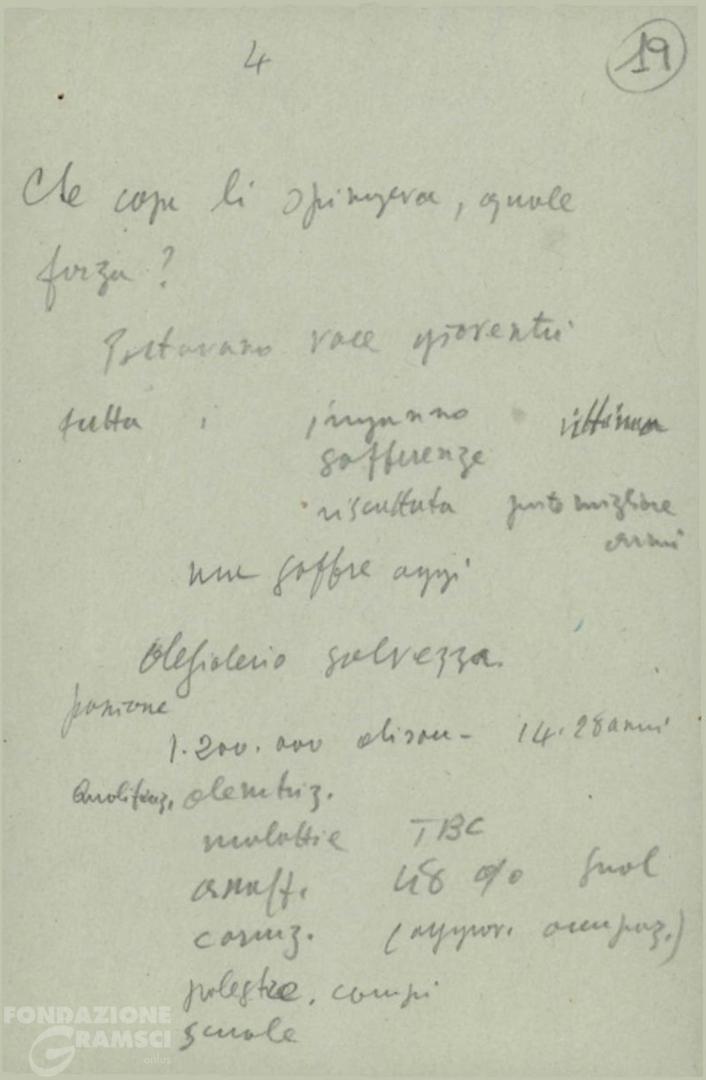 4
19
Che cosa li spingeva, quale
forza?
Portavano voce gioventù
tutta : inganno vittima
sofferenze
riscattata parte migliore
armi
soffre oggi
desiderio salvezza.
passione
1.200.000 disocc- 14.28 anni
Qualificaz. denutriz.
malattie TBC
analf. 48 %
coruz. (oggior. occupaz.)
palestre, campi
scuole
FONDAZIONE
GRAMSCI
onlus